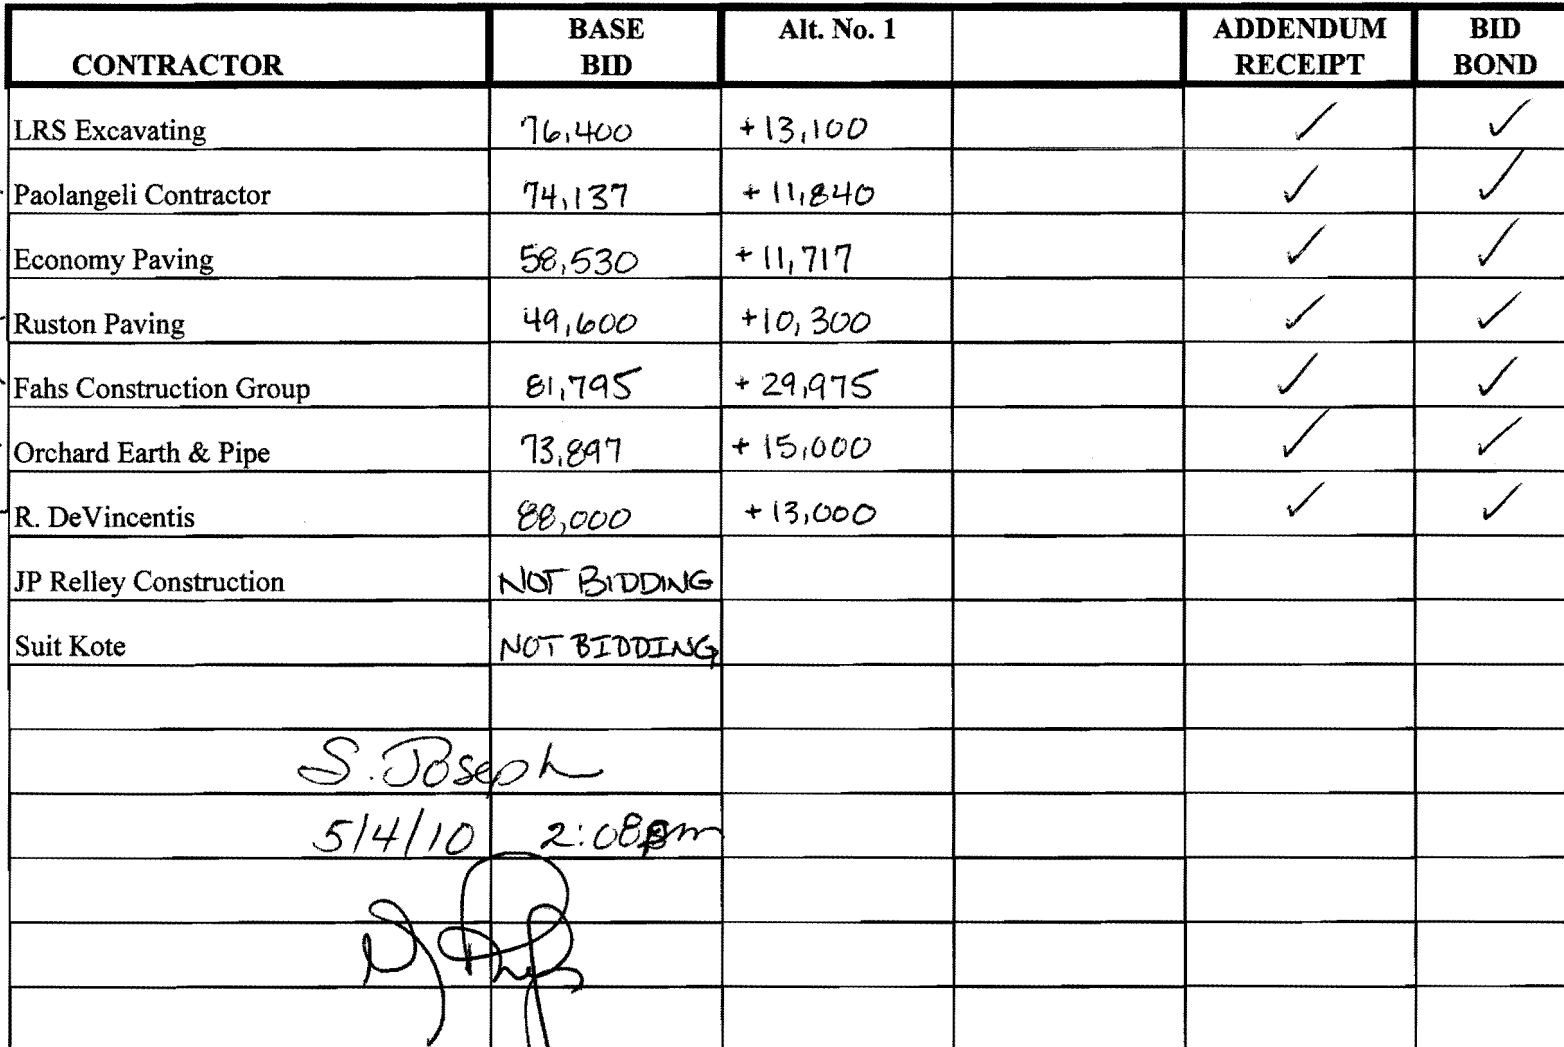 CONTRACTOR BASE BID Alt. No. 1 ADDENDUM RECEIPT BID BOND
LRS Excavating 76,400 +13,100 ✓ ✓
Paolangeli Contractor 74,137 +11,840 ✓ ✓
Economy Paving 58,530 +11,717 ✓ ✓
Ruston Paving 49,600 +10,300 ✓ ✓
Fahs Construction Group 81,795 +29,975 ✓ ✓
Orchard Earth & Pipe 73,897 +15,000 ✓ ✓
R. DeVincentis 88,000 +13,000 ✓ ✓
JP Relley Construction NOT BIDDING
Suit Kote NOT BIDDING
S. Joseph
5/4/10 2:08pm